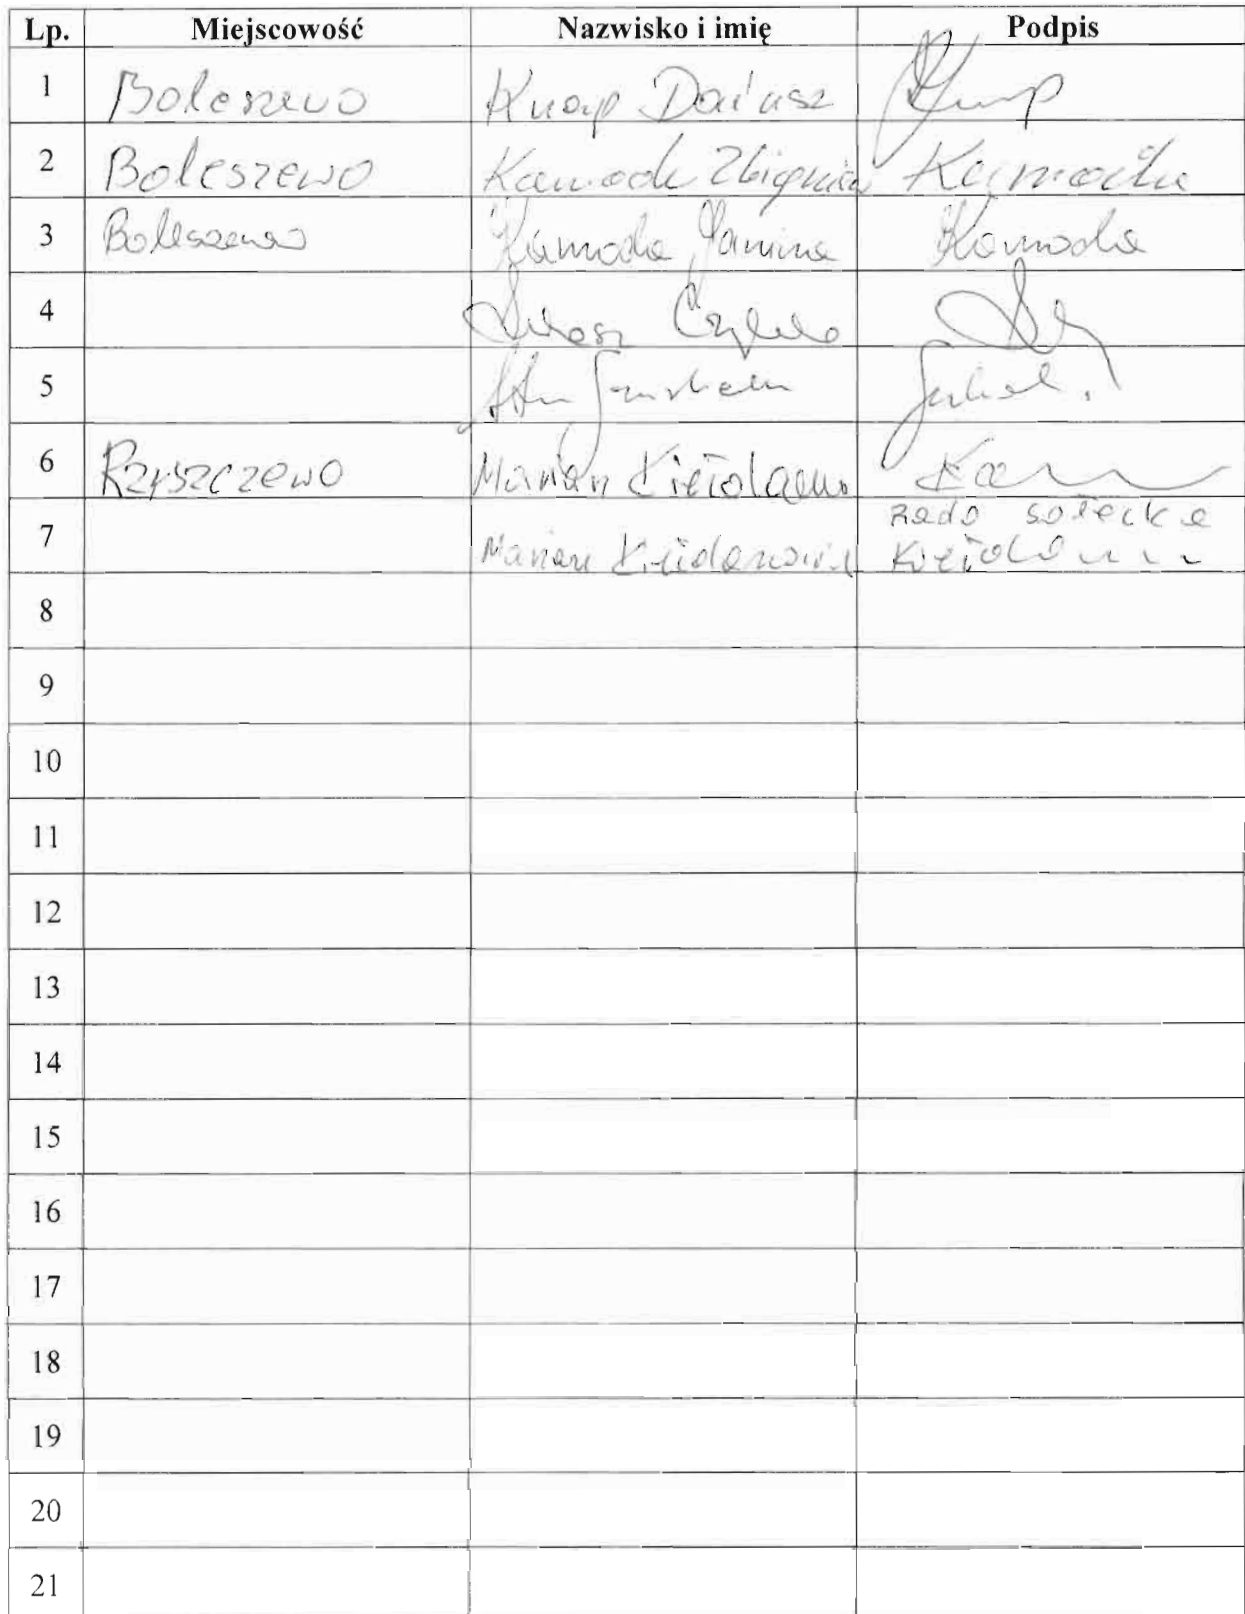 Lp. Miejscowość Nazwisko i imię Podpis
1 Boleszewo Knap Dariusz
2 Boleszewo Kamoda Zbigniew Kamoda
3 Boleszewo Kamoda Janina Kamoda
4 Łukasz
5
6 Rzyszczewo Marian
7 Marian Rada sołecka
8
9
10
11
12
13
14
15
16
17
18
19
20
21